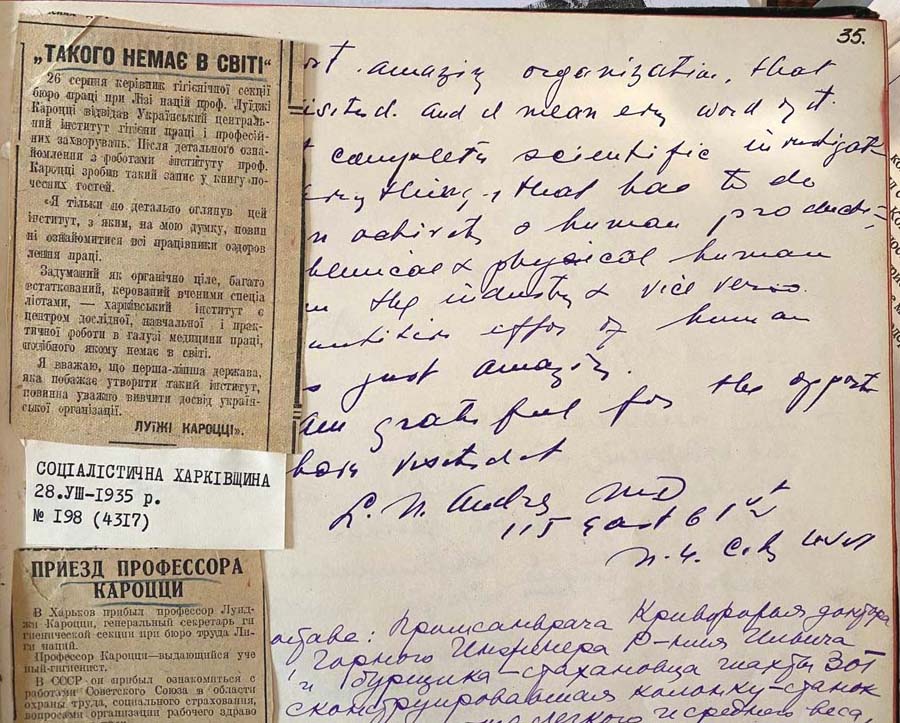 35.
„ТАКОГО НЕМАЄ В СВІТІ“
26 серпня керівник гігієнічної секції
бюро праці при Лізі націй проф. Луїджі
Кароцці відвідав Український централь-
ний інститут гігієни праці і професій-
них захворувань. Після детального озна-
йомлення з роботами інституту проф.
Кароцці зробив такий запис у книгу по-
чесних гостей.
«Я тільки що детально оглянув цей
інститут, з яким, на мою думку, повин
ні ознайомитися всі працівники оздоров
лення праці.
Задуманий як органічно ціле, багато
устаткований, керований вченими спеціа
лістами, — харківський інститут є
центром дослідної, навчальної і прак-
тичної роботи в галузі медицини праці,
подібного якому немає в світі.
Я вважаю, що перша-ліпша держава,
яка побажає утворити такий інститут,
повинна уважно вивчити досвід україн-
ської організації.
ЛУЇЖІ КАРОЦЦІ».
СОЦІАЛІСТИЧНА ХАРКІВЩИНА
28.УШ-1935 р.
№ 198 (4317)
ПРИЕЗД ПРОФЕССОРА
КАРОЦЦИ
В Харьков прибыл профессор Луид-
жи Кароцци, генеральный секретарь ги
гиенической секции при бюро труда Ли-
ги наций.
Профессор Кароцци—выдающийся уче
ный-гигиенист.
В СССР он прибыл ознакомиться с
работами Советского Союза в области
охраны труда, социального страхования,
вопросами организации рабочего здраво
amazing organization, that
and I mean every word of it.
complete scientific investigat
that has to do
human product=
chemical & physical human
the industry & vice versa.
effor of human
just amazing.
am grateful for the opport
visited it
L. N. MD
115 East 61st
N. Y. City
Промсанврача Криворожья доктора
Горного Инженера
и бурщика-стахановца шахты
сконструировавшая колонку-станок
легкого и среднего веса,